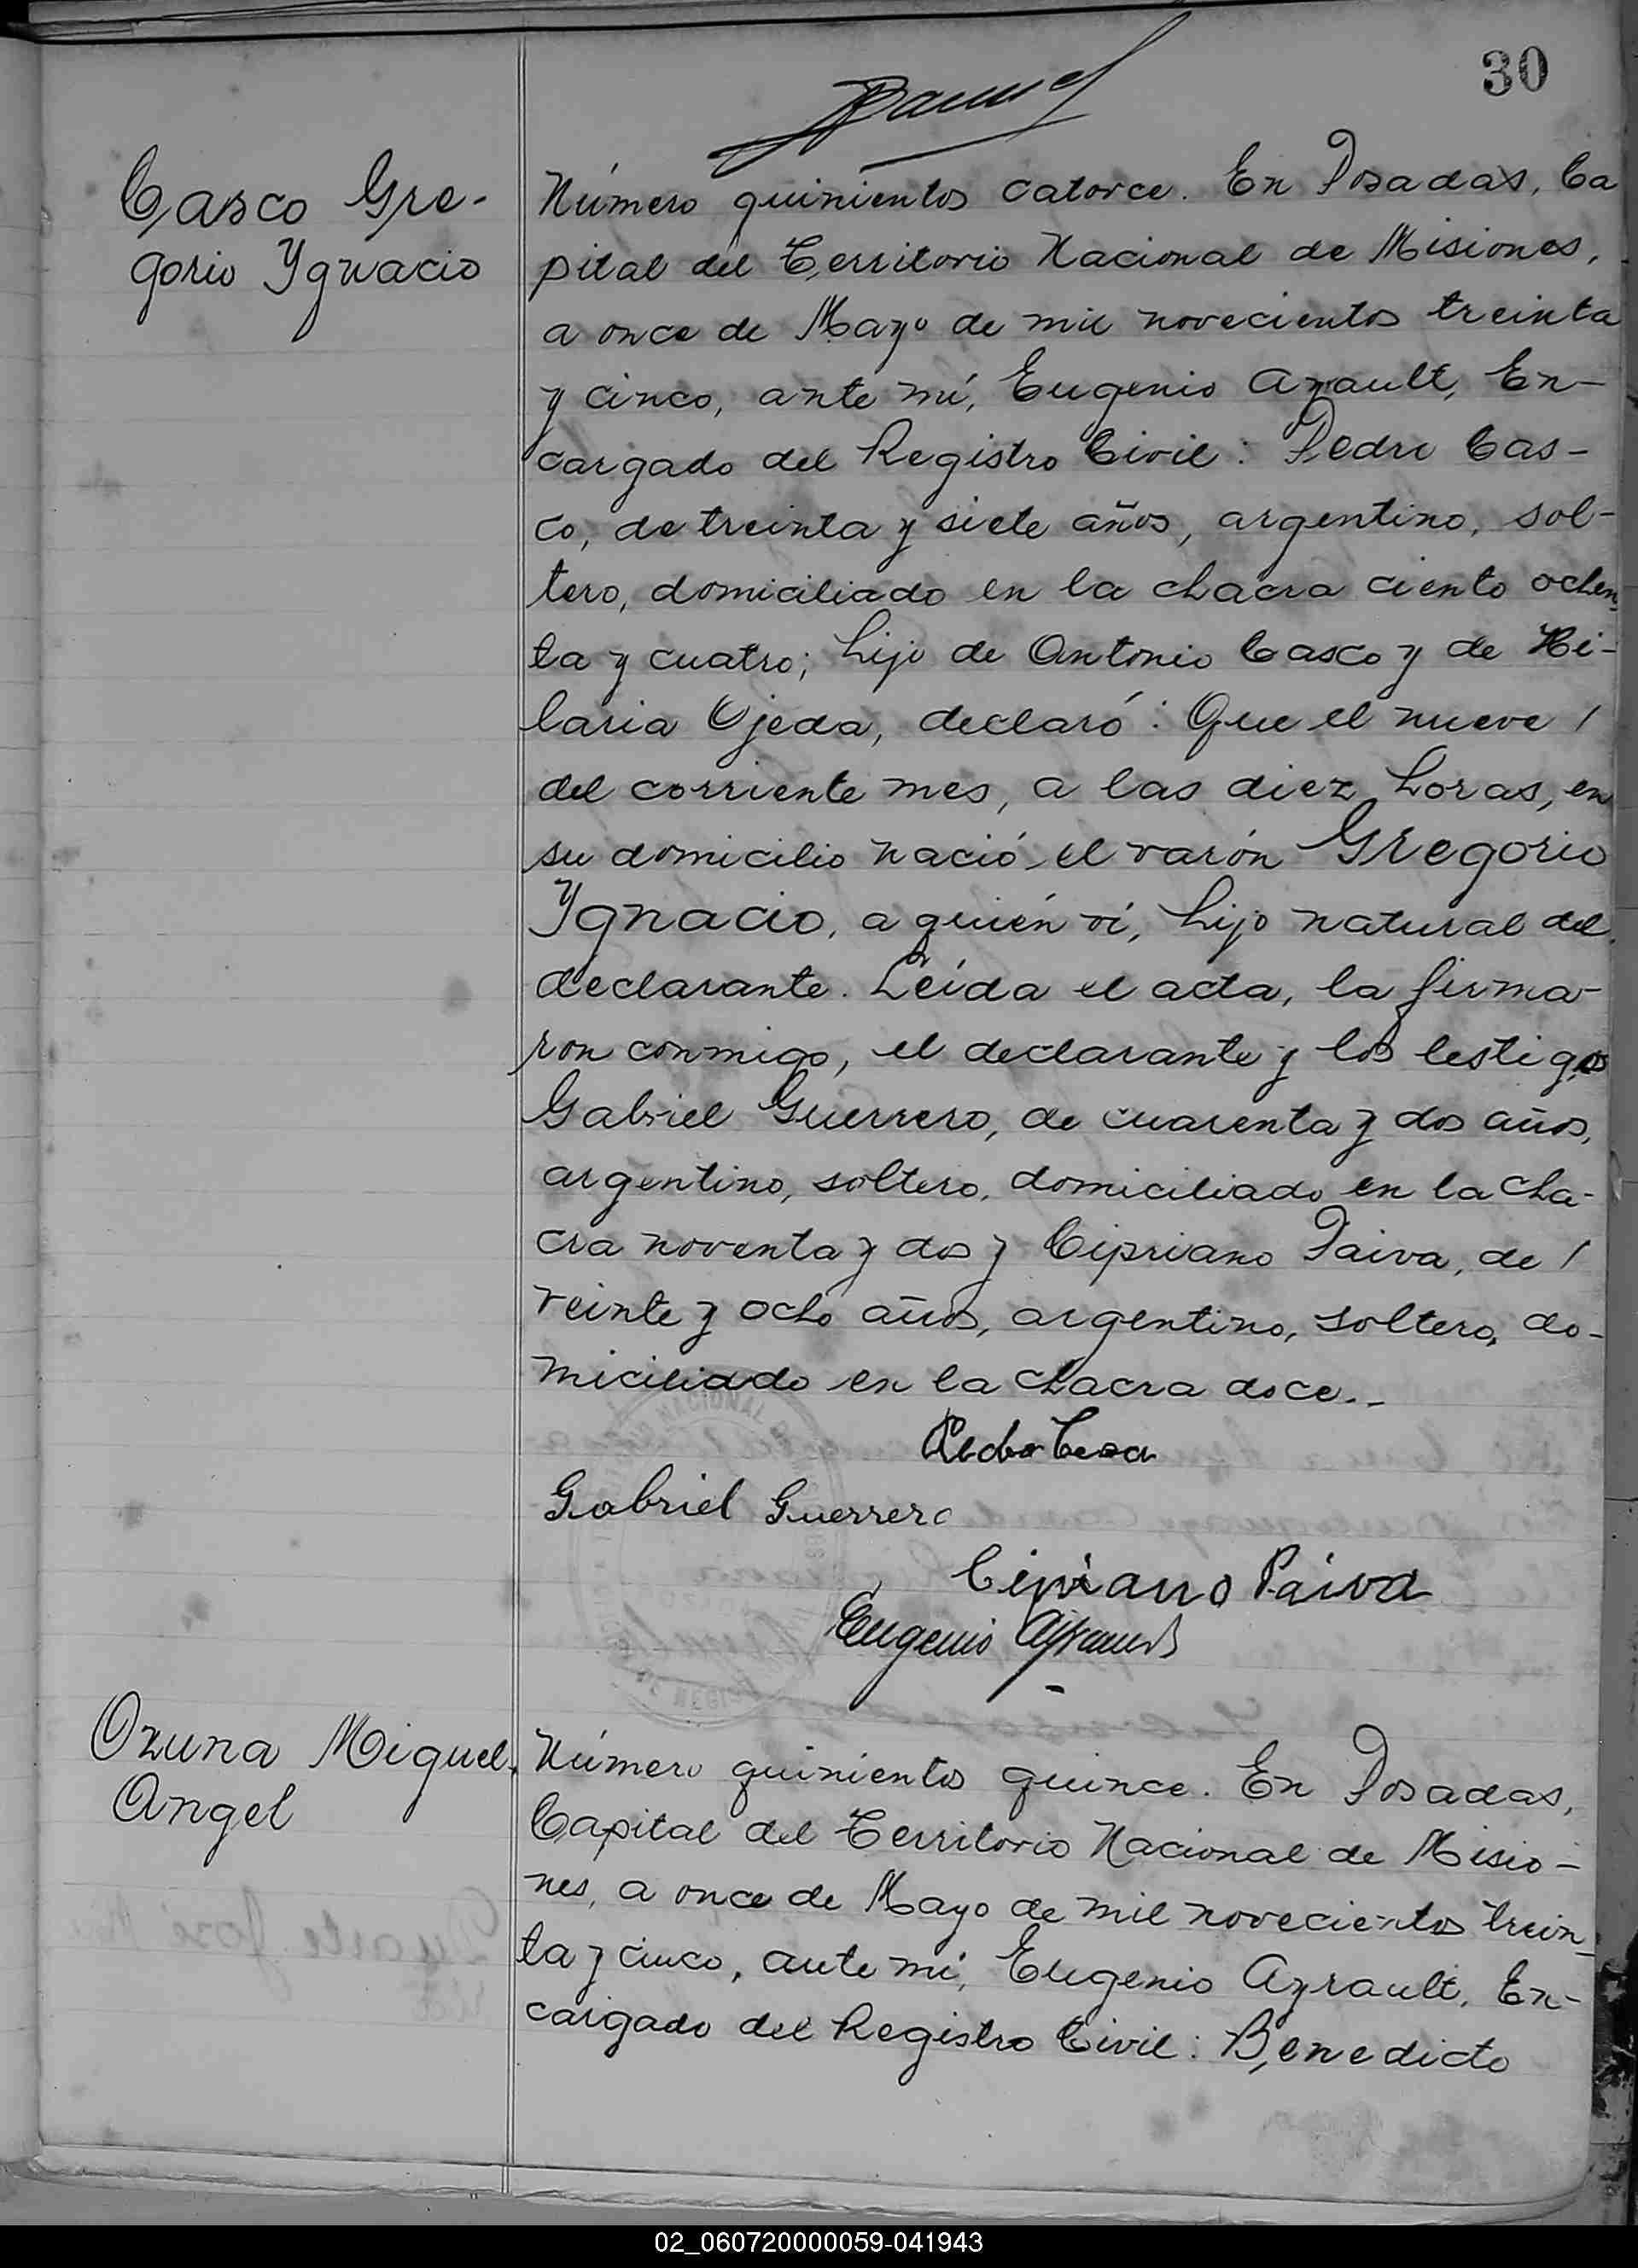 30
Casco Gre-
gorio Ygnacio
Número quinientos catorce. En Posadas, Ca
pital del Territorio Nacional de Misiones,
a once de Mayo de mil novecientos treinta
y cinco, ante mí, Eugenio Ayrault, En-
cargado del Registro Civil: Pedro Cas-
co, de treinta y siete años, argentino, sol-
tero, domiciliado en la chacra ciento ochen-
ta y cuatro; hijo de Antonio Casco y de Hi-
laria Ojeda, declaró: Que el nueve /
del corriente mes, a las diez horas, en
su domicilio nació el varón Gregorio
Ygnacio, a quién ví, hijo natural del
declarante. Leída el acta, la firma-
ron conmigo, el declarante y los testigos
Gabriel Guerrero, de cuarenta y dos años,
argentino, soltero, domiciliado en la cha-
cra noventa y dos y Cipriano Paiva, de /
veinte y ocho años, argentino, soltero, do-
miciliado en la chacra doce.-
Pedro
Gabriel Guerrero
Cipriano Paiva
Eugenio Ayrault
Ozuna Miguel
Angel
Número quinientos quince. En Posadas,
Capital del Territorio Nacional de Misio-
nes, a once de Mayo de mil novecientos trein-
ta y cinco, ante mí, Eugenio Ayrault, En-
cargado del Registro Civil: Benedicto
02_060720000059-041943